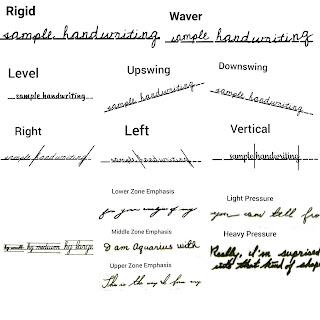 Rigid
Waver
sample handwriting
sample handwriting
Level
Upswing
Downswing
sample handwriting
sample handwriting
sample handwriting
Right
Left
Vertical
sample handwriting
sample handwriting
sample handwriting
Lower Zone Emphasis
Light Pressure
you can tell fro
Middle Zone Emphasis
Heavy Pressure
I am Aquarius with
Really, I'm suprised
Upper Zone Emphasis
that kind of shape
This is the way I
hg medium hg large